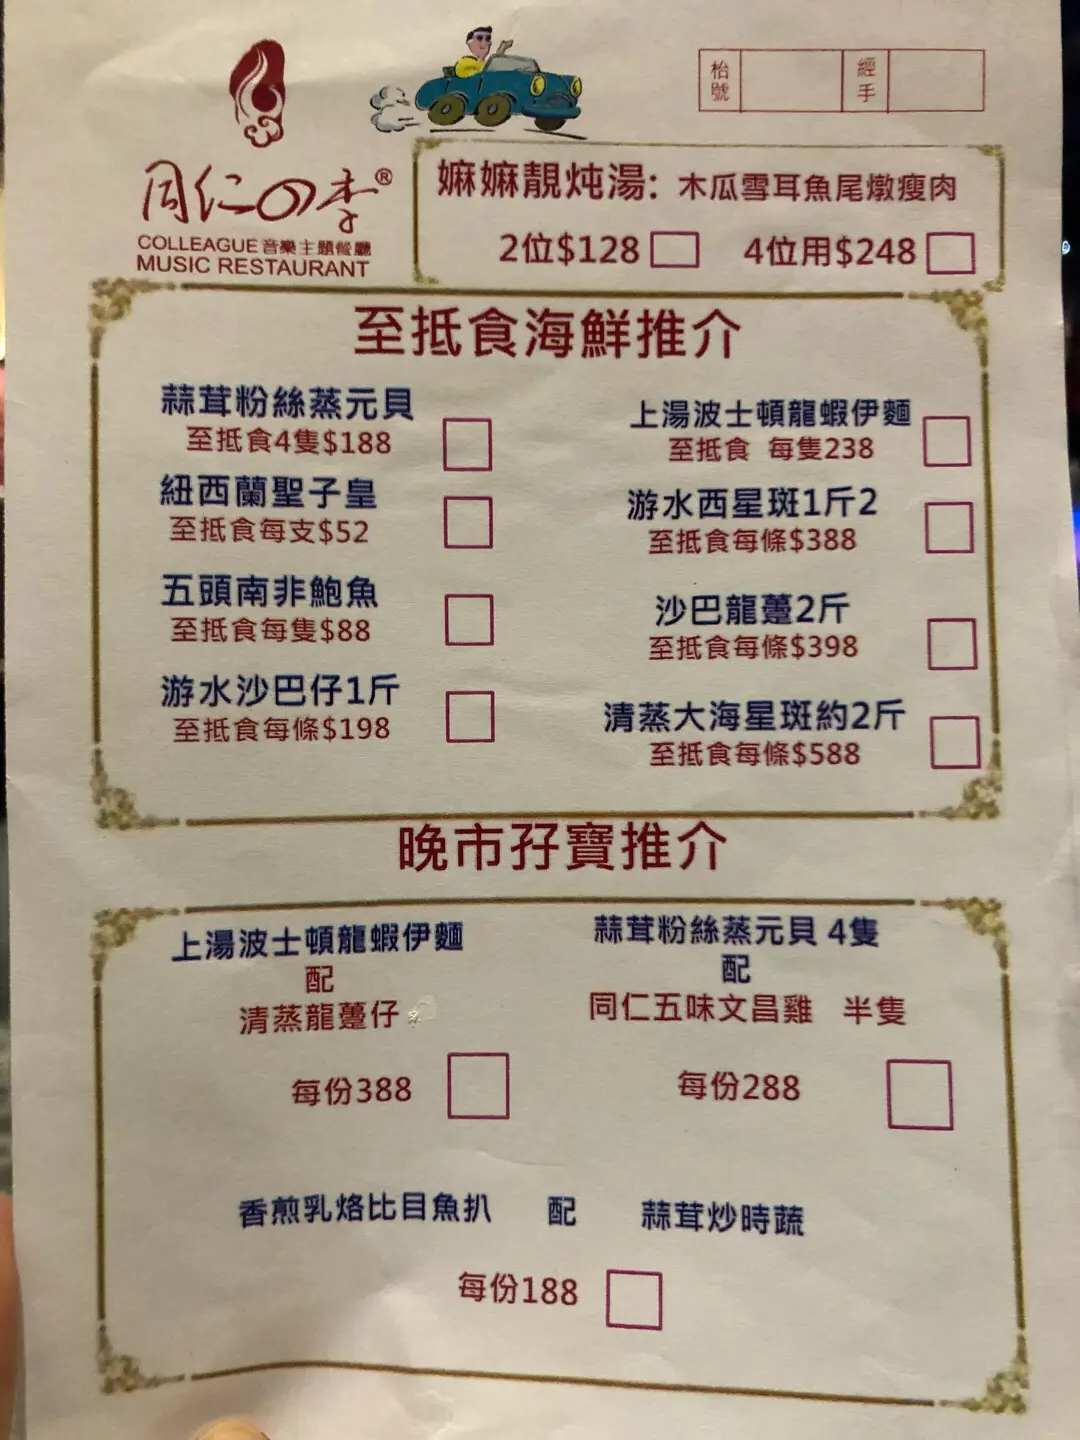 枱號
經手
同仁四季®
COLLEAGUE音樂主題餐廳
MUSIC RESTAURANT
嫲嫲靚炖湯: 木瓜雪耳魚尾燉瘦肉
2位$128 4位用$248
至抵食海鮮推介
蒜茸粉絲蒸元貝
至抵食4隻$188
紐西蘭聖子皇
至抵食每支$52
五頭南非鮑魚
至抵食每隻$88
游水沙巴仔1斤
至抵食每條$198
上湯波士頓龍蝦伊麵
至抵食 每隻238
游水西星斑1斤2
至抵食每條$388
沙巴龍躉2斤
至抵食每條$398
清蒸大海星斑約2斤
至抵食每條$588
晚市孖寶推介
上湯波士頓龍蝦伊麵
配
清蒸龍躉仔
每份388
蒜茸粉絲蒸元貝 4隻
配
同仁五味文昌雞 半隻
每份288
香煎乳烙比目魚扒 配 蒜茸炒時蔬
每份188